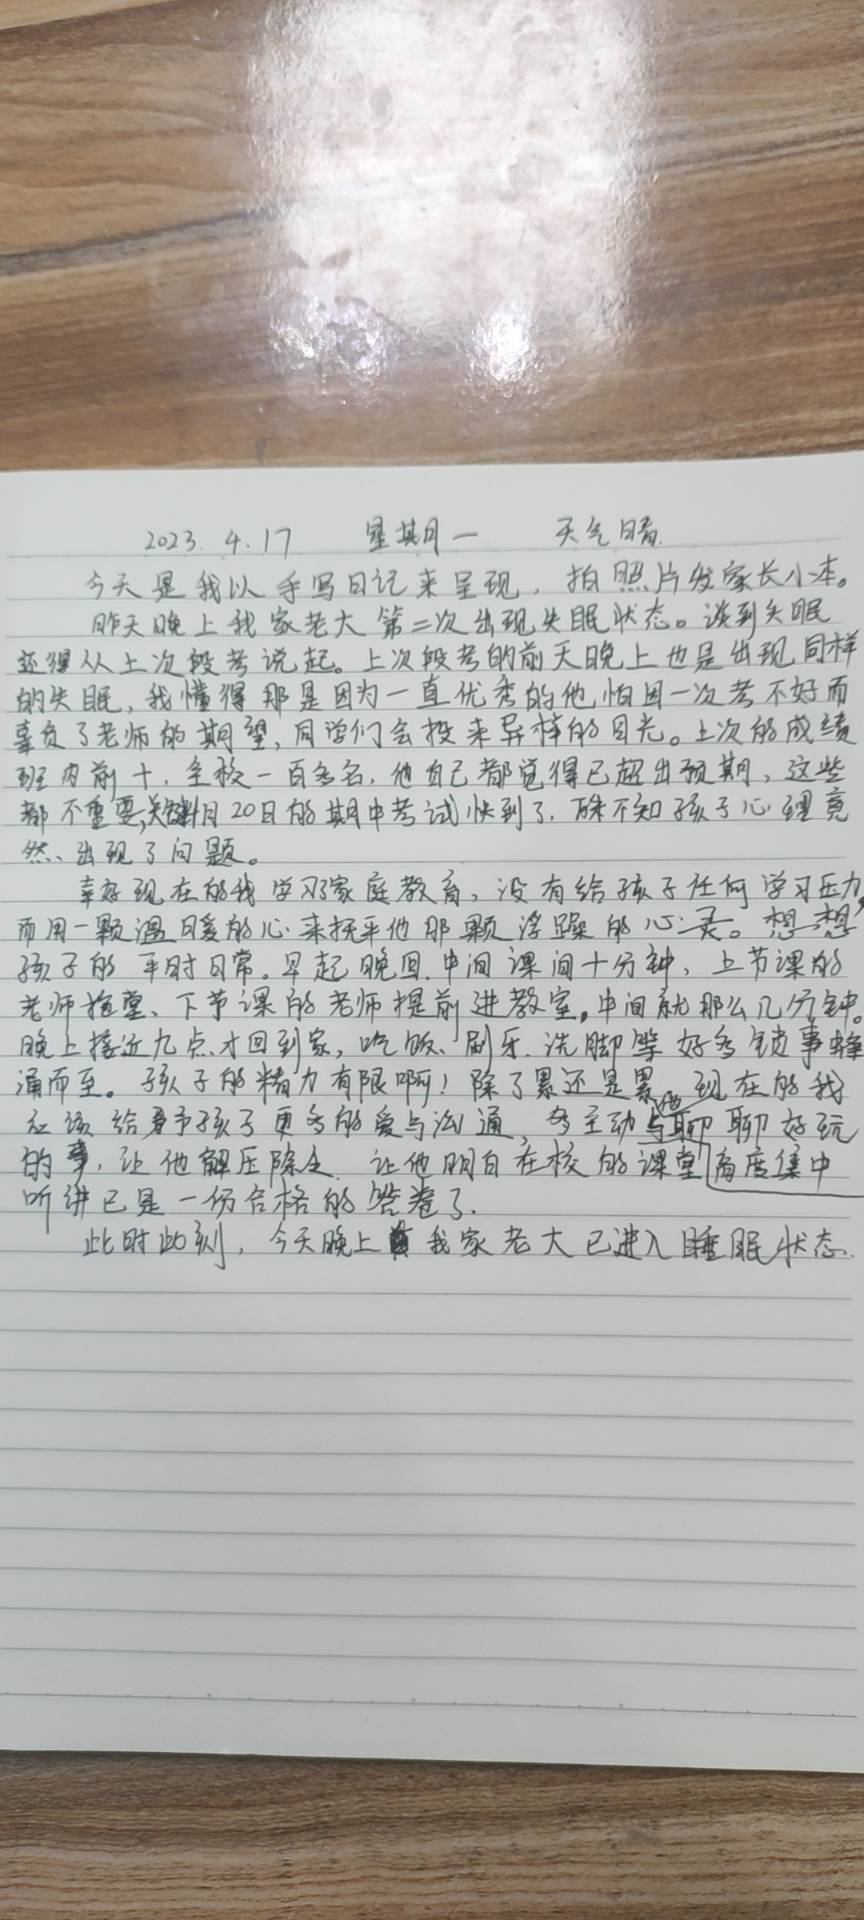 2023.4.17 星期一 天气晴.
今天是我以手写日记来呈现，拍照片发家长小本。
昨天晚上我家老大第二次出现失眠状态。谈到失眠
还得从上次段考说起。上次段考的前天晚上也是出现同样
的失眠，我懂得那是因为一直优秀的他怕因一次考不好而
辜负了老师的期望，同学们会投来异样的目光。上次的成绩
班内前十，全校一百多名，他自己都觉得已超出预期，这些
都不重要，关键4月20日的期中考试快到了，殊不知孩子心理竟
然、出现了问题。
幸好现在的我学习了家庭教育，没有给孩子任何学习压力，
而用一颗温暖的心来抚平他那颗浮躁的心灵。想想
孩子的平时日常。早起晚回.中间课间十分钟，上节课的
老师拖堂、下节课的老师提前进教室，中间就那么几分钟。
晚上接近九点才回到家，吃饭、刷牙.洗脚等好多锁事蜂
涌而至。孩子的精力有限啊！除了累还是累，现在的我
应该给予孩子更多的爱与沟通，多主动与他聊聊好玩
的事，让他解压除 让他明白在校的课堂高度集中
听讲已是一份合格的答卷了.
此时此刻，今天晚上我家老大已进入睡眠状态.